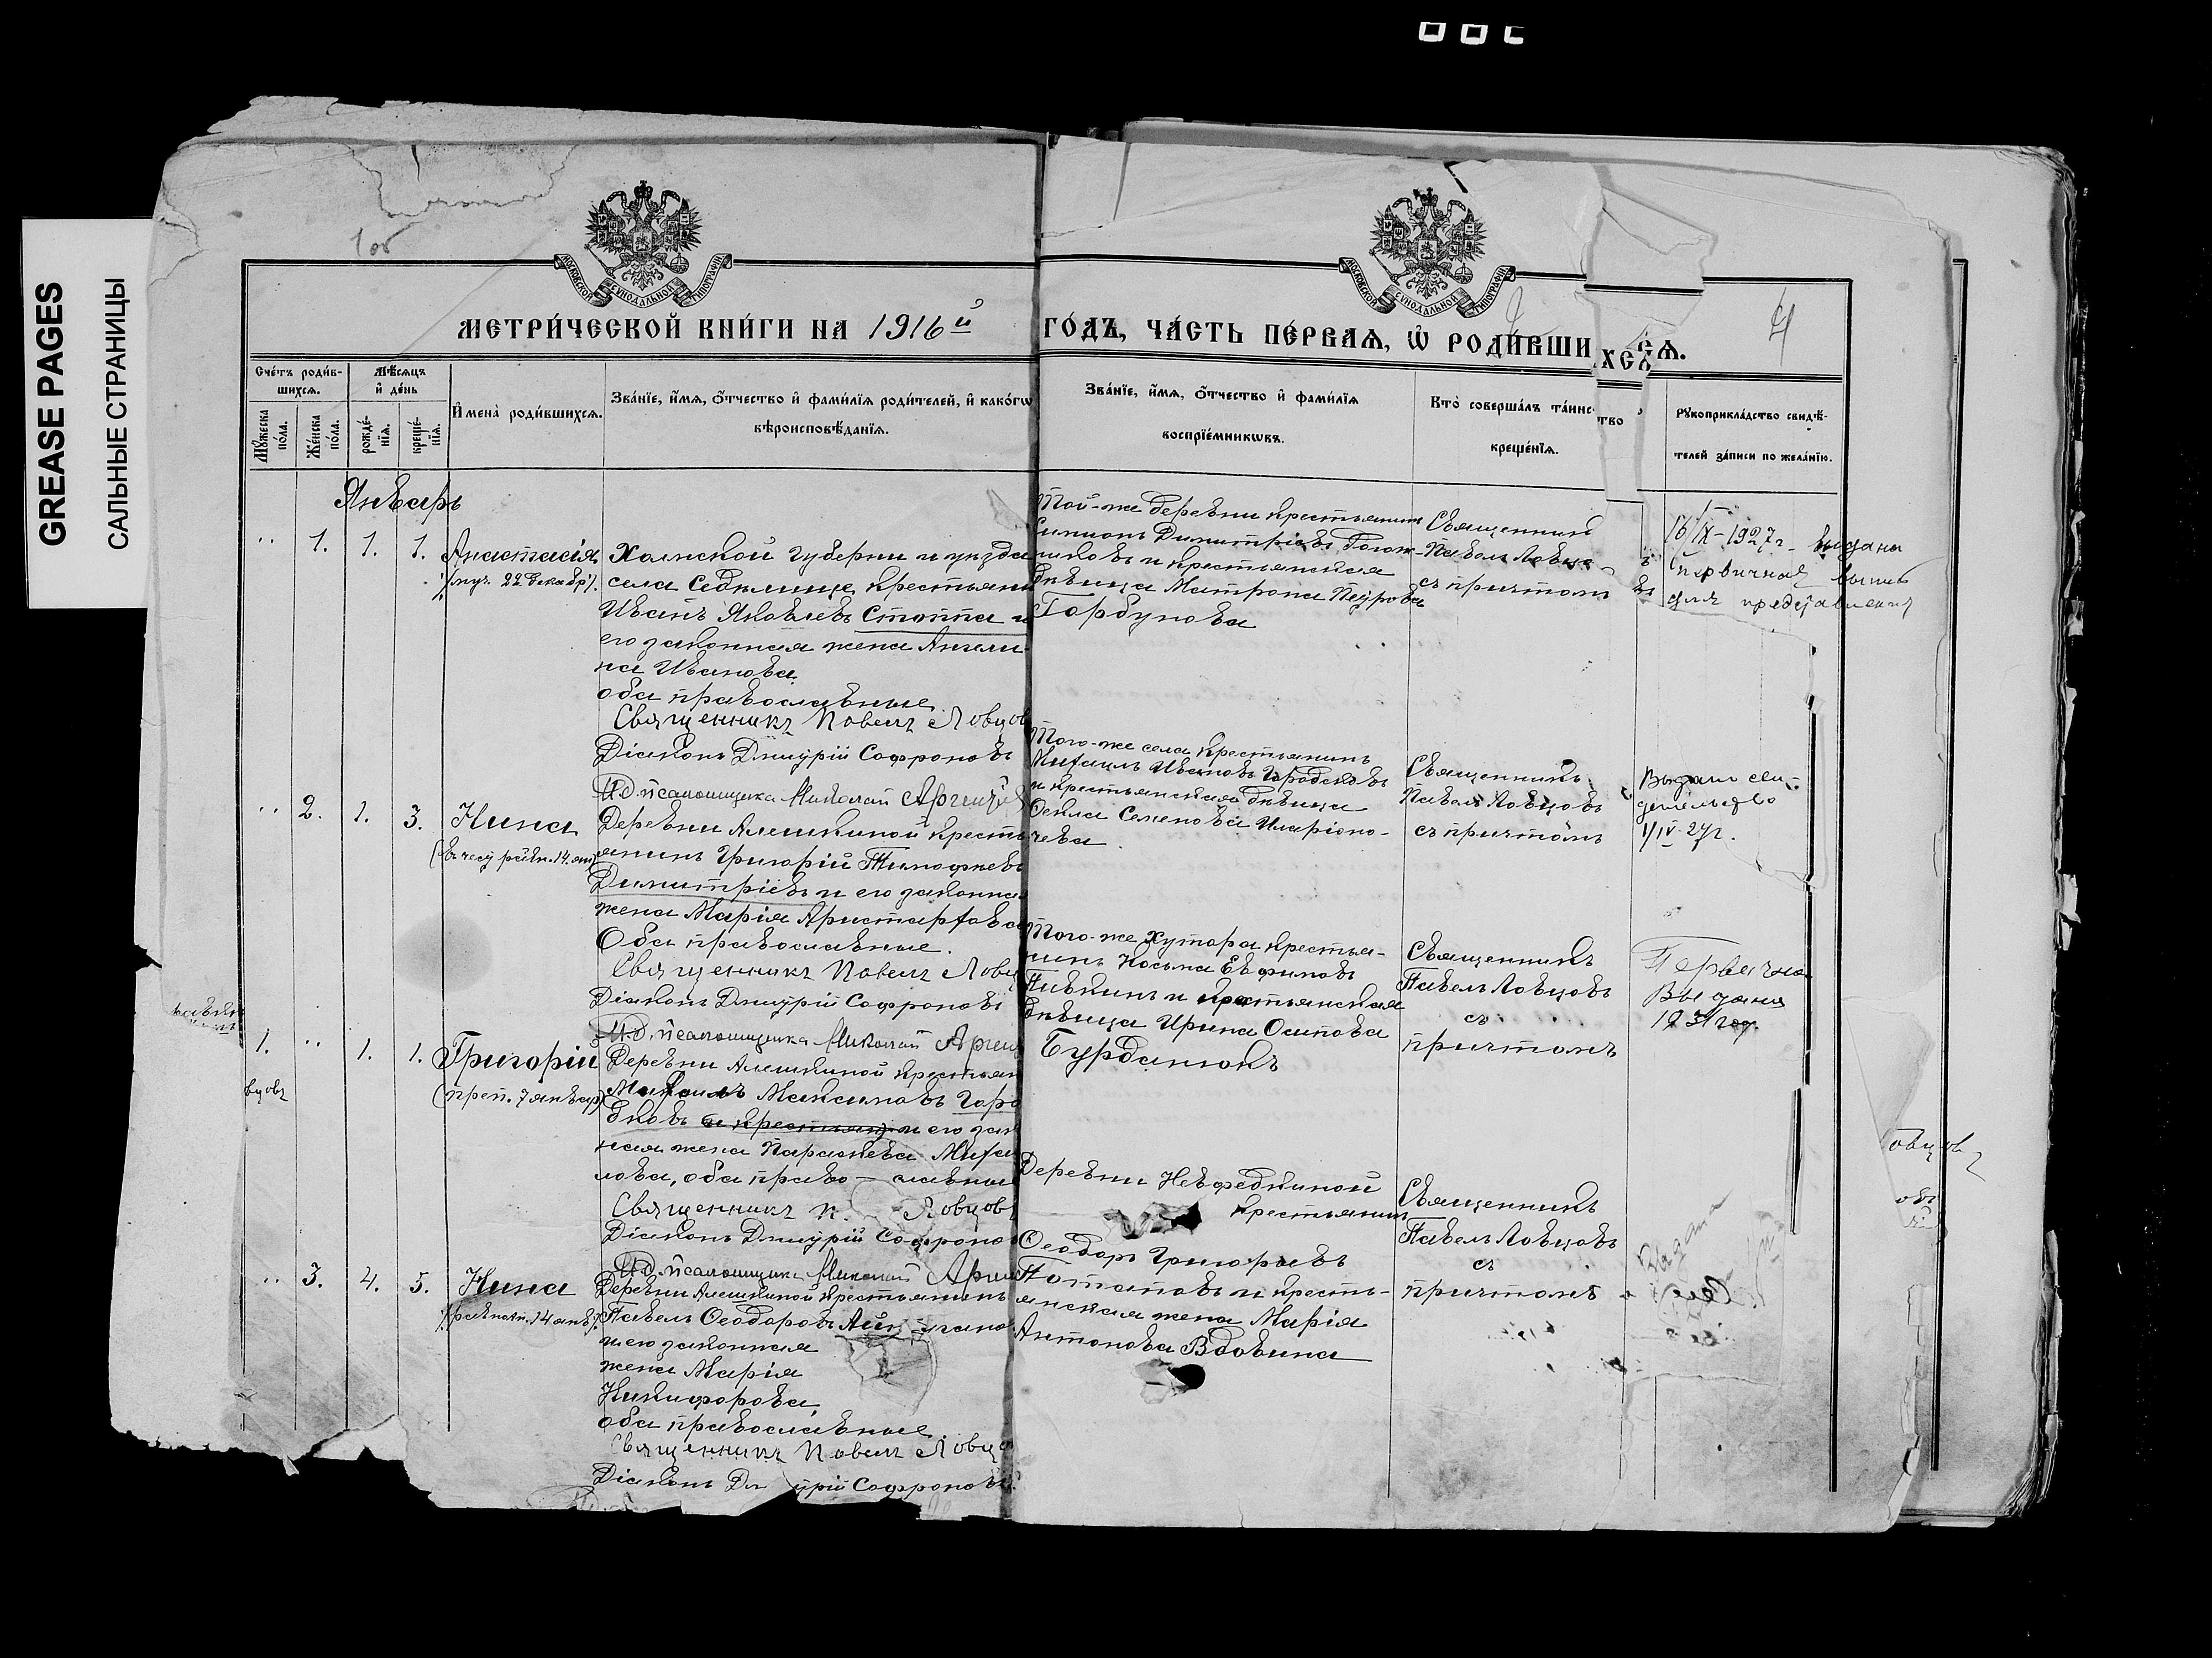 GREASE PAGES
САЛЬНЫЕ СТРАНИЦЫ
1об
4
МОСКОВСКОЙ СѴНОДАЛЬНОЙ ТИПОГРАФІИ
МОСКОВСКОЙ СѴНОДАЛЬНОЙ ТИПОГРАФІИ
МЕТРИ́ЧЕСКОЙ КНИ́ГИ НА 1916й ГО́ДЪ, ЧА́СТЬ ПЕ́РВАѦ, Ѡ҆ РОДИ́ВШИХСѦ.
Сче́тъ роди́вшихсѧ.
Мꙋ́жеска по́ла.
Же́нска по́ла.
Мѣ́сѧцъ и҆ де́нь
рожде́нїѧ.
креще́нїѧ.
И҆мена̀ роди́вшихсѧ.
Зва́нїе, и҆́мѧ, ѻ҆́тчество и҆ фами́лїѧ роди́телей, и҆ како́гѡ
вѣроисповѣ́данїѧ.
Зва́нїе, и҆́мѧ, ѻ҆́тчество и҆ фами́лїѧ
воспрїе́мникѡвъ.
Кто̀ соверша́лъ та́инство
креще́нїѧ.
Рꙋкоприкла́дство свидѣ́-
телей за́писи по жела́нїю.
Январь
" 1. 1. 1.
Анастасія
(муч. 22 декабр).
Холмской губерни и уезда
села Седлище крестьяни
Иванъ Яковлевъ Стоппа и
его законная жена Ангели-
на Иванова
оба православные.
Священникъ Павелъ Ловцов
Діаконъ Димитрій Софроновъ
И.д. псаломщика Николай
Той-же деревни крестьянинъ
Симионъ Димитріевъ
и крестьянская
дѣвица Матрона Петрова
Горбунова
Священникъ
Павелъ Ловцо
съ причтомъ
16/IX-1927г. выдана
первичная выпис
для представления
" 2. 1. 3.
Нина
Деревни Алешкиной кресть-
янинъ Григорій Тимофеевъ
Димитріевъ и его законна
жена Марія Аристархова
Оба православные.
Священникъ Павелъ Ловц
Діаконъ Димитрій Софроновъ
И.д. псаломщика Николай
Того-же села крестьянинъ
Михаилъ Ивановъ Городновъ
и крестьянская дѣвица
Семенова Иларіоно-
чева.
Священникъ
Павелъ Ловцовъ
съ причтомъ
Выдано сви-
детельство
1/IV-27г.
1. " 1. 1.
Григорій
(преп. 7 январ)
Деревни Алешкиной крестьян
Михаилъ Максимовъ Горо
дновъ и крестьян и его зак
ная жена Параскева Михаи
лова, оба право — славные
Священникъ П. Ловцовъ
Діаконъ Димитрій Софронов
И.д. псаломщика Николай
Того-же Хутора крестья-
нинъ Косьма Евфимовъ
Пивкинъ и крестьянская
дѣвица Ирина Осипова
Бурданюкъ
Священникъ
Павелъ Ловцовъ
съ
причтомъ
Первична
Выдана
1931 год.
" 3. 4. 5.
Нина
(равноап. 14 янв).
Деревни Алешкиной крестьянинъ
Павелъ Ѳеодоровъ
и его законная
жена Марія
Никифорова,
оба православные.
Священникъ Павелъ Ловцо
Діаконъ Дм трій Софроновъ
Деревни Невфедкиной
крестьянинъ
Ѳеодоръ Григорьевъ
Потаповъ и кресть-
янская жена Марія
Антонова Вдовина
Священникъ
Павелъ Ловцовъ
съ
причтомъ
Выдана
вцовъ
овцовъ